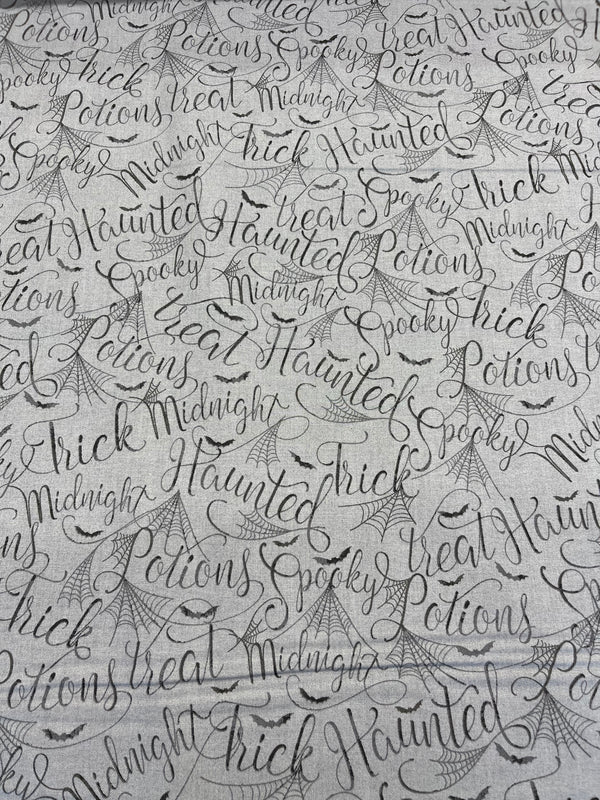 treat Haunted
Spooky trick Spooky Potions
Potions treat Midnight Potions
Spooky Midnight trick Haunted
treat Haunted treat Spooky trick
Haunted Potions Midnight
Potions Spooky Midnight Spooky trick
Potions treat Haunted Potions
Trick Midnight Spooky
Midnight Haunted Trick
Potions Spooky treat Haunted
Trick Potions
Potions treat Midnight Potions
Spooky Midnight Trick Haunted